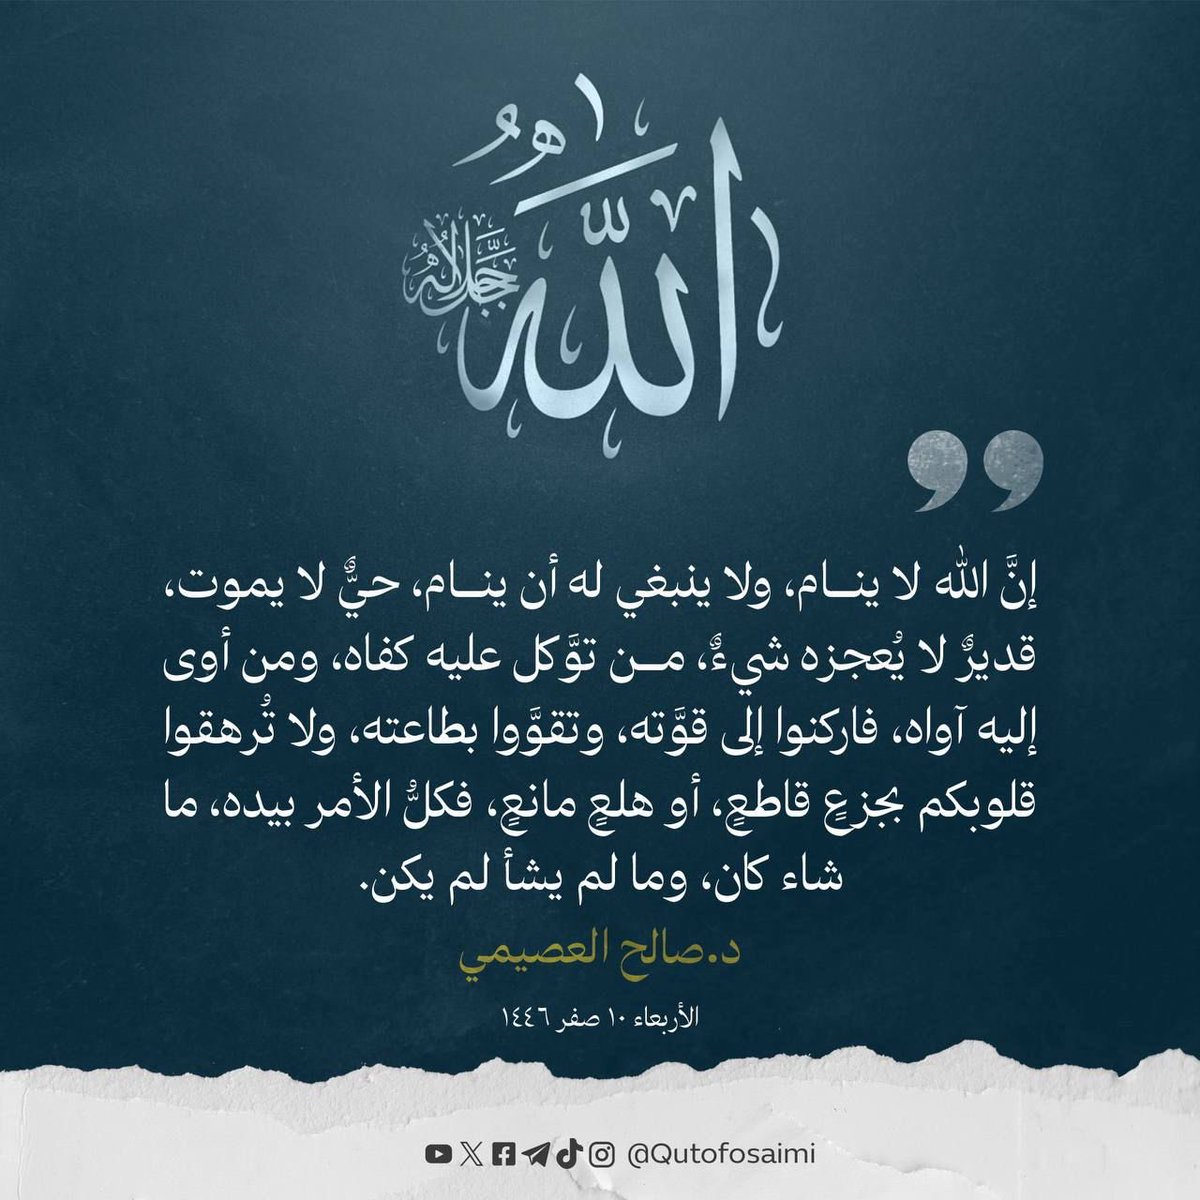 الله
جل جلاله
إنَّ الله لا ينـــام، ولا ينبغي له أن ينـــام، حيٌّ لا يموت،
قديرٌ لا يُعجزه شيءٌ، مـــن توَّكل عليه كفاه، ومن أوى
إليه آواه، فاركنوا إلى قوَّته، وتقوَّوا بطاعته، ولا تُرهقوا
قلوبكم بجزعٍ قاطعٍ، أو هلعٍ مانعٍ، فكلُّ الأمر بيده، ما
شاء كان، وما لم يشأ لم يكن.
د.صالح العصيمي
الأربعاء ١٠ صفر ١٤٤٦
@Qutofosaimi